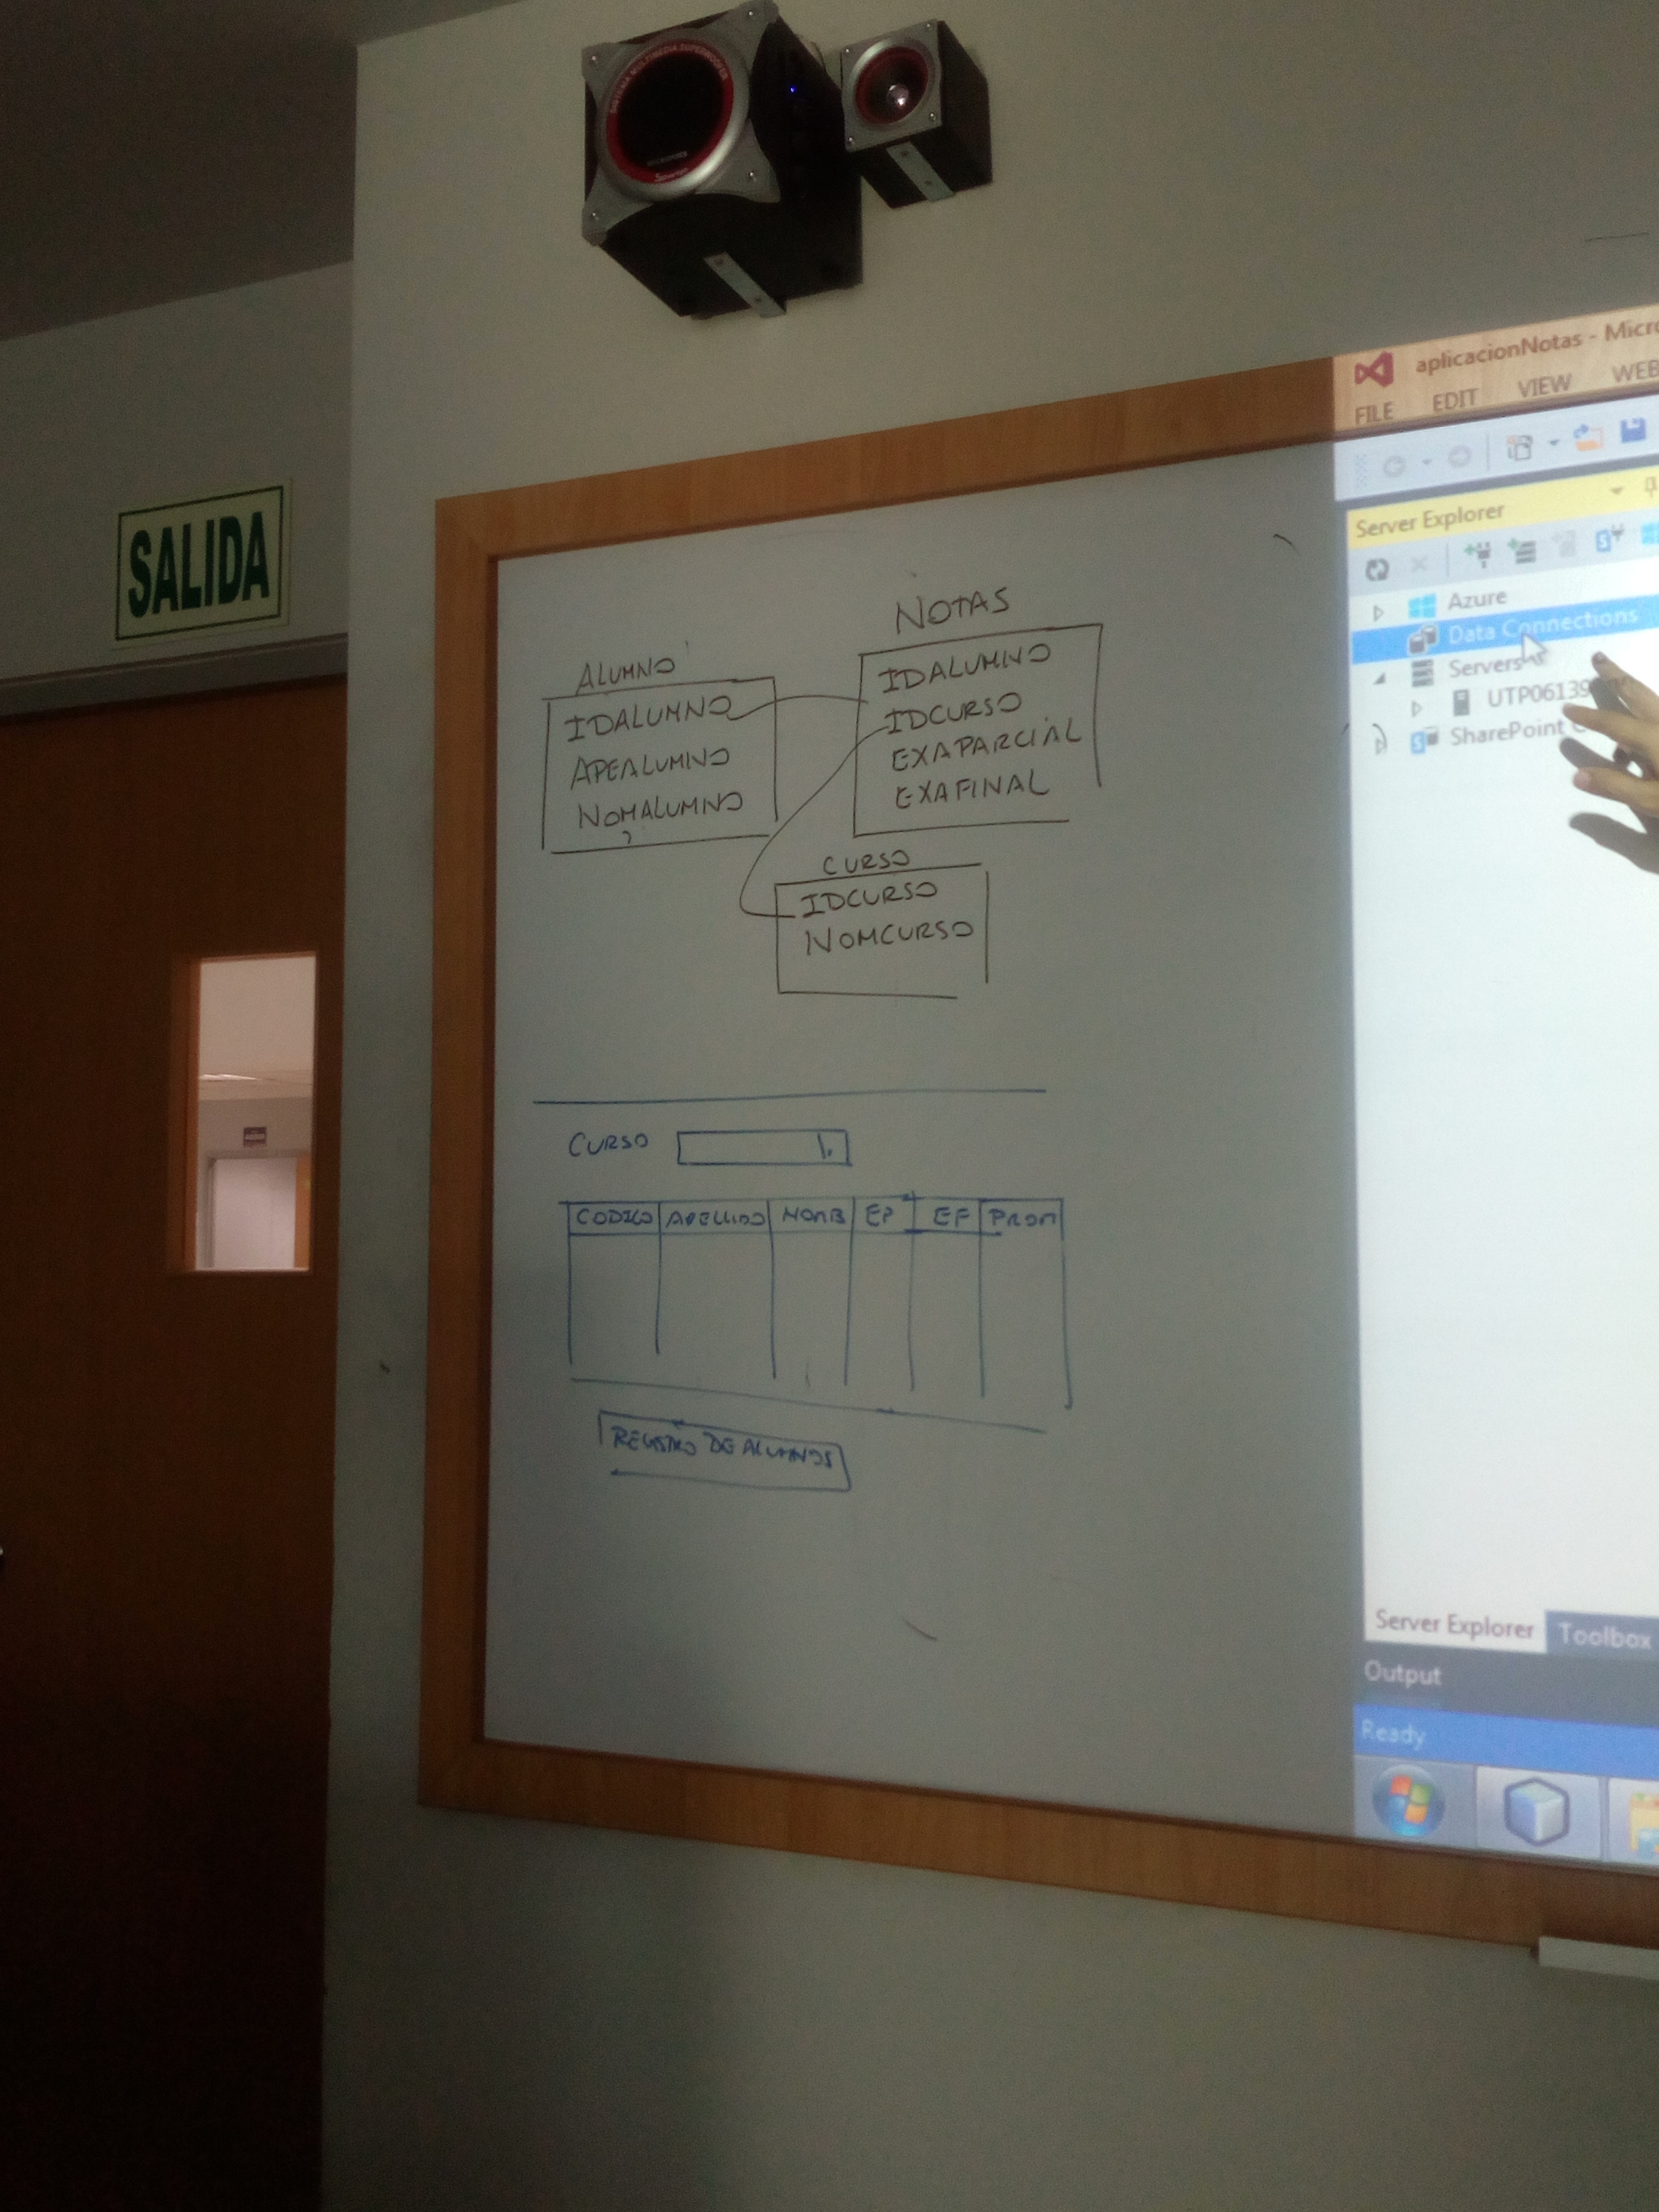 SISTEMA MULTIMEDIA SUPERWOOFER
SALIDA
ALUMNO
IDALUMNO
APEALUMNO
NOMALUMNO
NOTAS
IDALUMNO
IDCURSO
EXAPARCIAL
EXAFINAL
CURSO
IDCURSO
NOMCURSO
CURSO
CODIGO APELLIDO NOMB EP EF PROM
REGISTRO DE ALUMNOS
aplicacionNotas - Micro
FILE EDIT VIEW WEB
Server Explorer
Azure
Data Connections
Servers
UTP06139
SharePoint C
Server Explorer Toolbox
Output
Ready